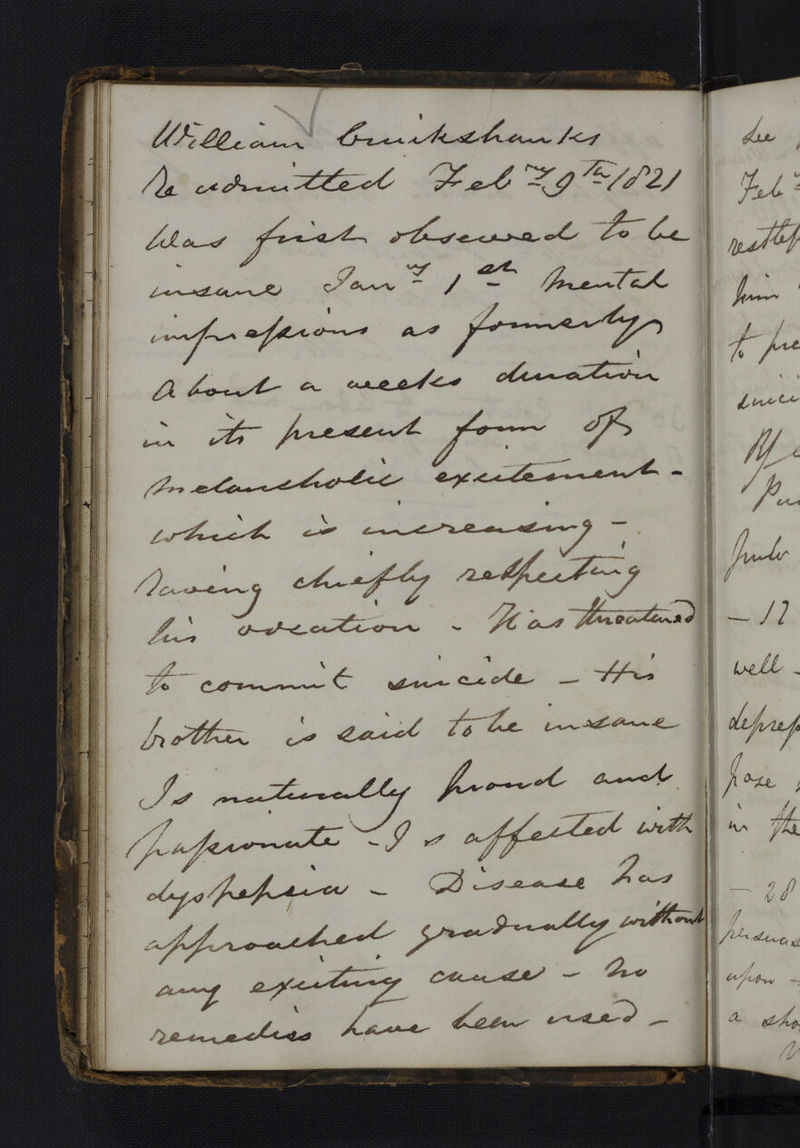 William Cruikshanks
Re admitted Feb.ry 9th 1821
Was first observed to be
insane Jan.ry 1st Mental
impressions as formerly
About a weeks duration
in its present form of
Melancholic excitement -
which is increasing -
raving chiefly respecting
his vocation - Has threatened
to commit suicide - His
brother is said to be insane
Is naturally proud and
passionate - Is affected with
dyspepsia - Disease has
approached gradually without
any exciting cause - No
remedies have been used -
See
Feb.y
restless
him
to pre
suici
Pu
- 12
well -
depres
pose
in the
- 28
persuas
upon -
a sho